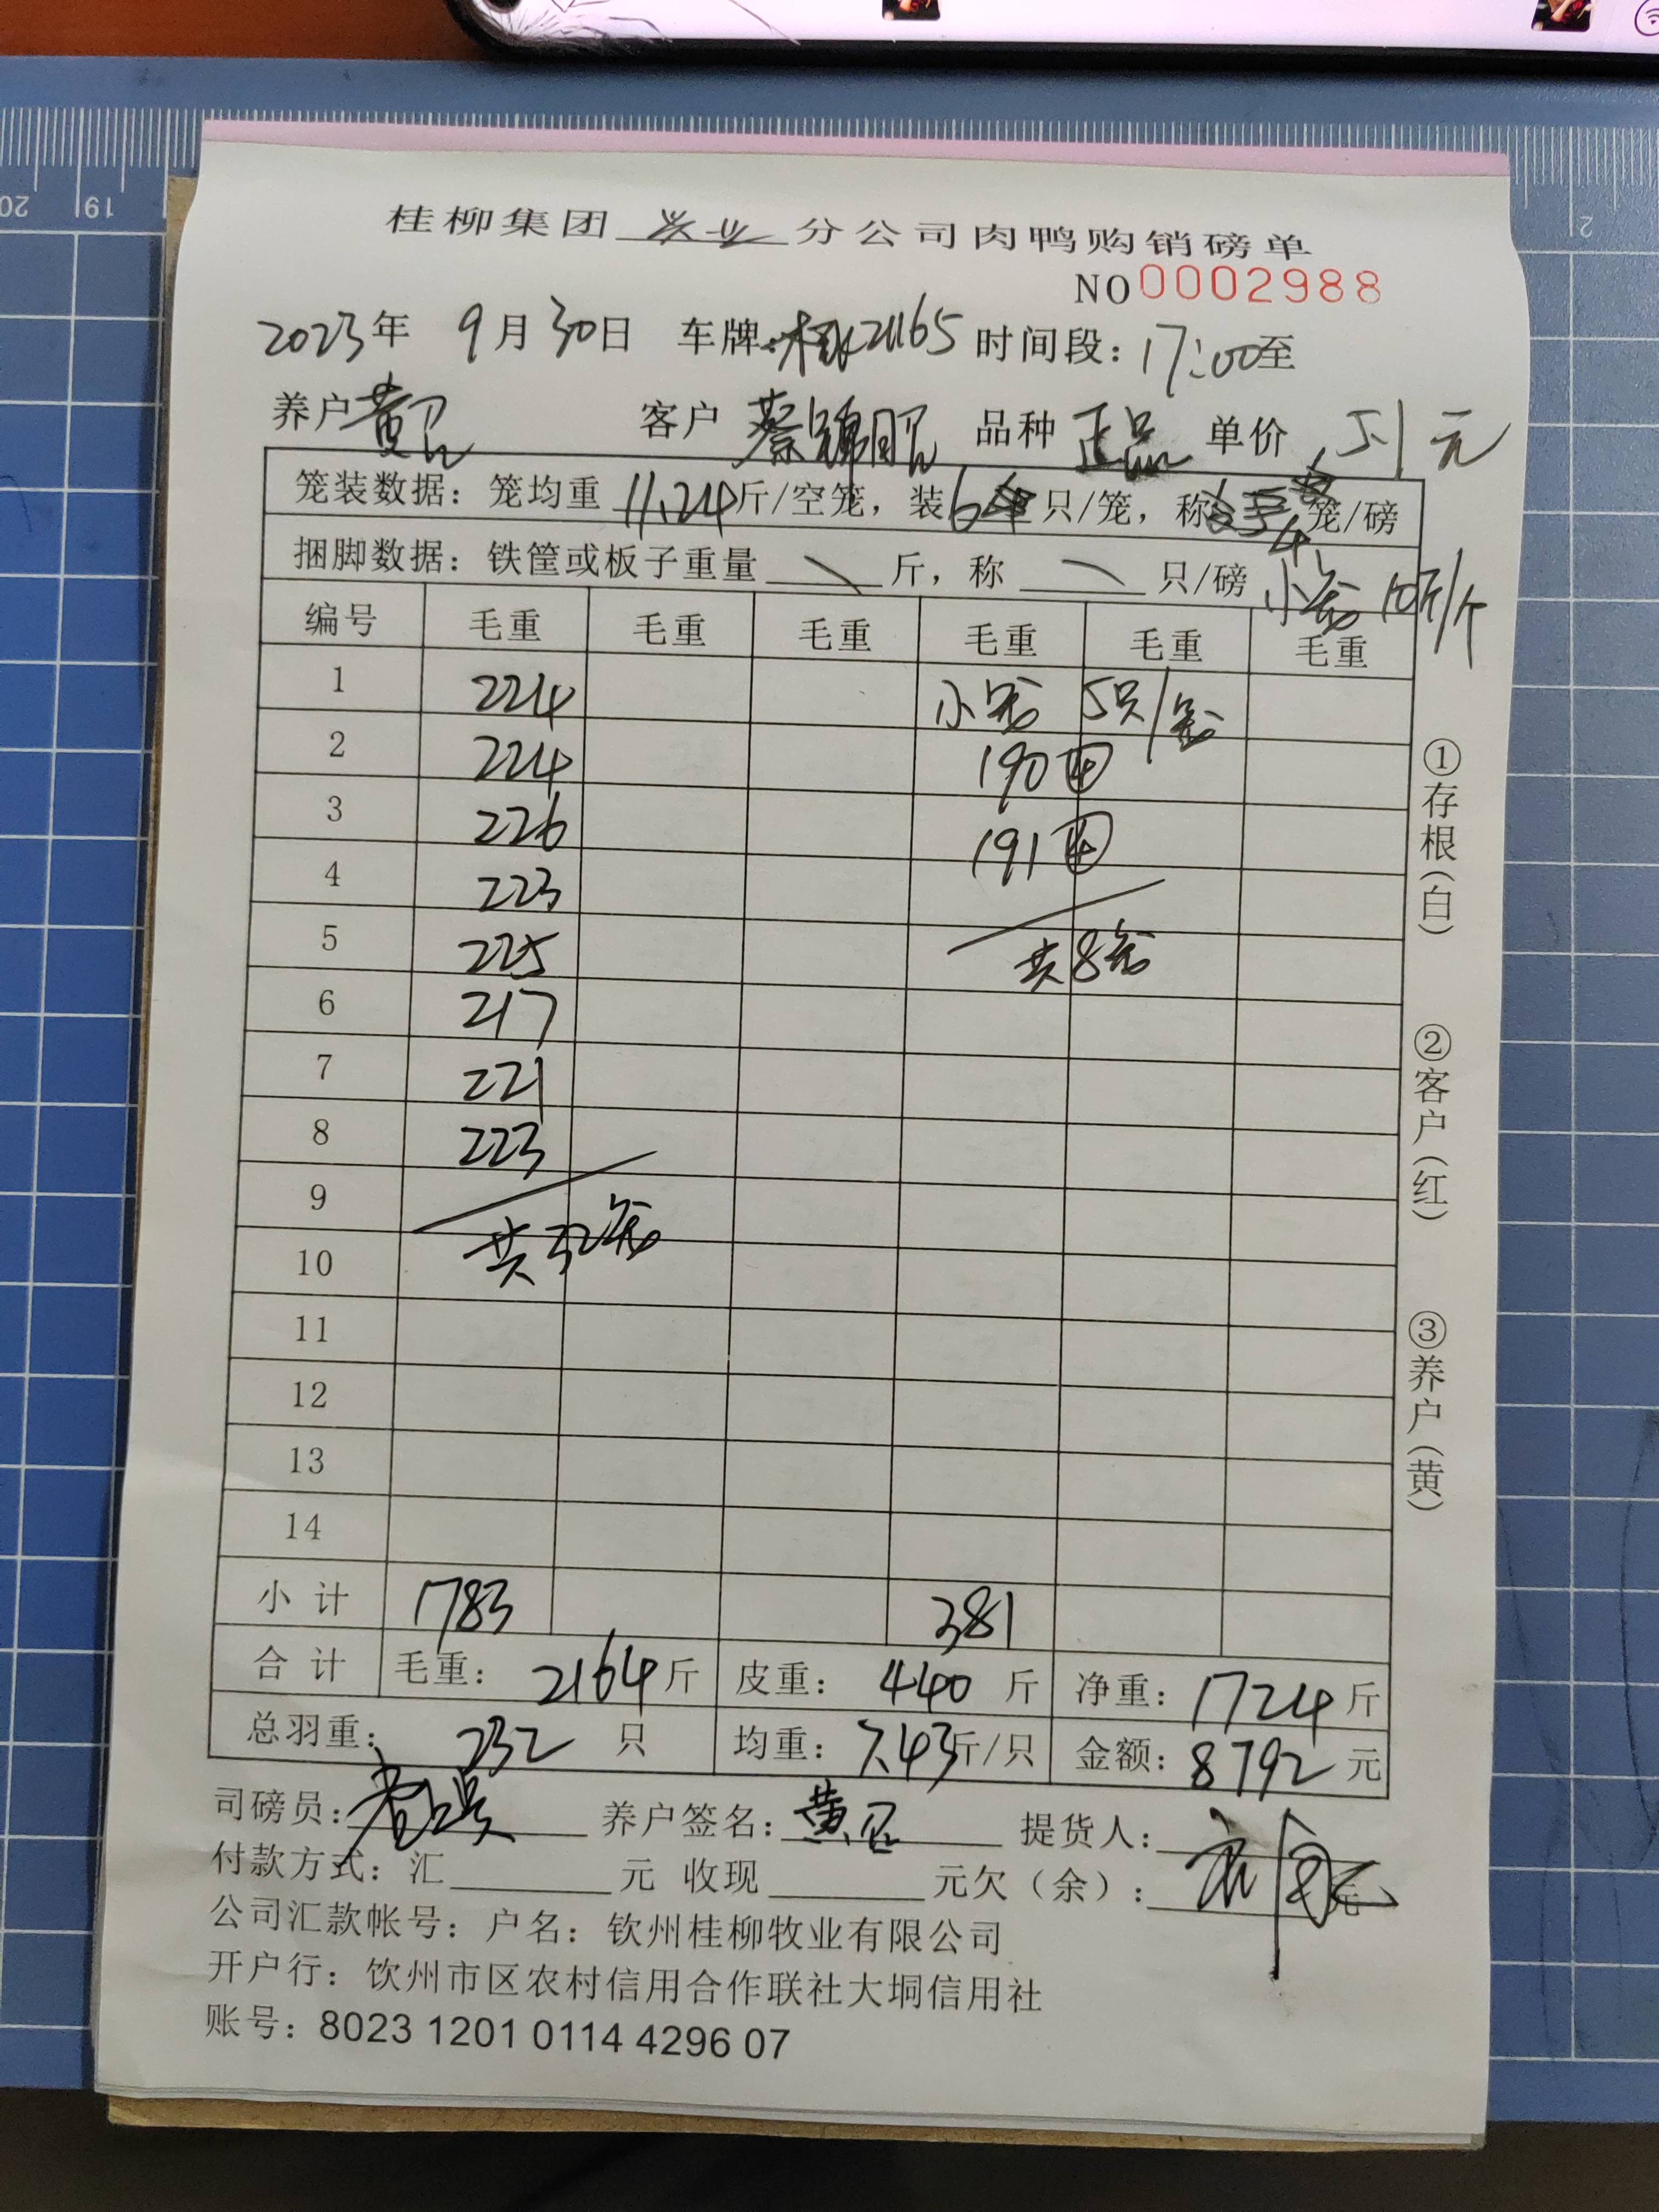 桂柳集团 兴业 分公司肉鸭购销磅单
NO 0002988
2023年 9月30日 车牌: 21165 时间段: 17:00至
养户 黄 客户 蔡锦昭 品种 正品 单价 5.1 元
笼装数据: 笼均重 11.24斤/空笼, 装6只/笼, 称4笼/磅
捆脚数据: 铁筐或板子重量 斤, 称 只/磅 小笼 10斤/个
编号 毛重 毛重 毛重 毛重 毛重 毛重
1 224 小笼 5只/笼
2 224 190 ④
3 226 191 ④
4 223
5 225 共8笼
6 217
7 221
8 223
9
10 共32笼
11
12
13
14
小计 1783 381
合计 毛重: 2164斤 皮重: 440 斤 净重: 1724斤
总羽重: 232 只 均重: 7.43斤/只 金额: 8792 元
司磅员: 养户签名: 黄 提货人:
付款方式: 汇 元 收现 元欠(余): 元
公司汇款帐号: 户名: 钦州桂柳牧业有限公司
开户行: 饮州市区农村信用合作联社大垌信用社
账号: 8023 1201 0114 4296 07
①存根(白)
②客户(红)
③养户(黄)
20 19
2